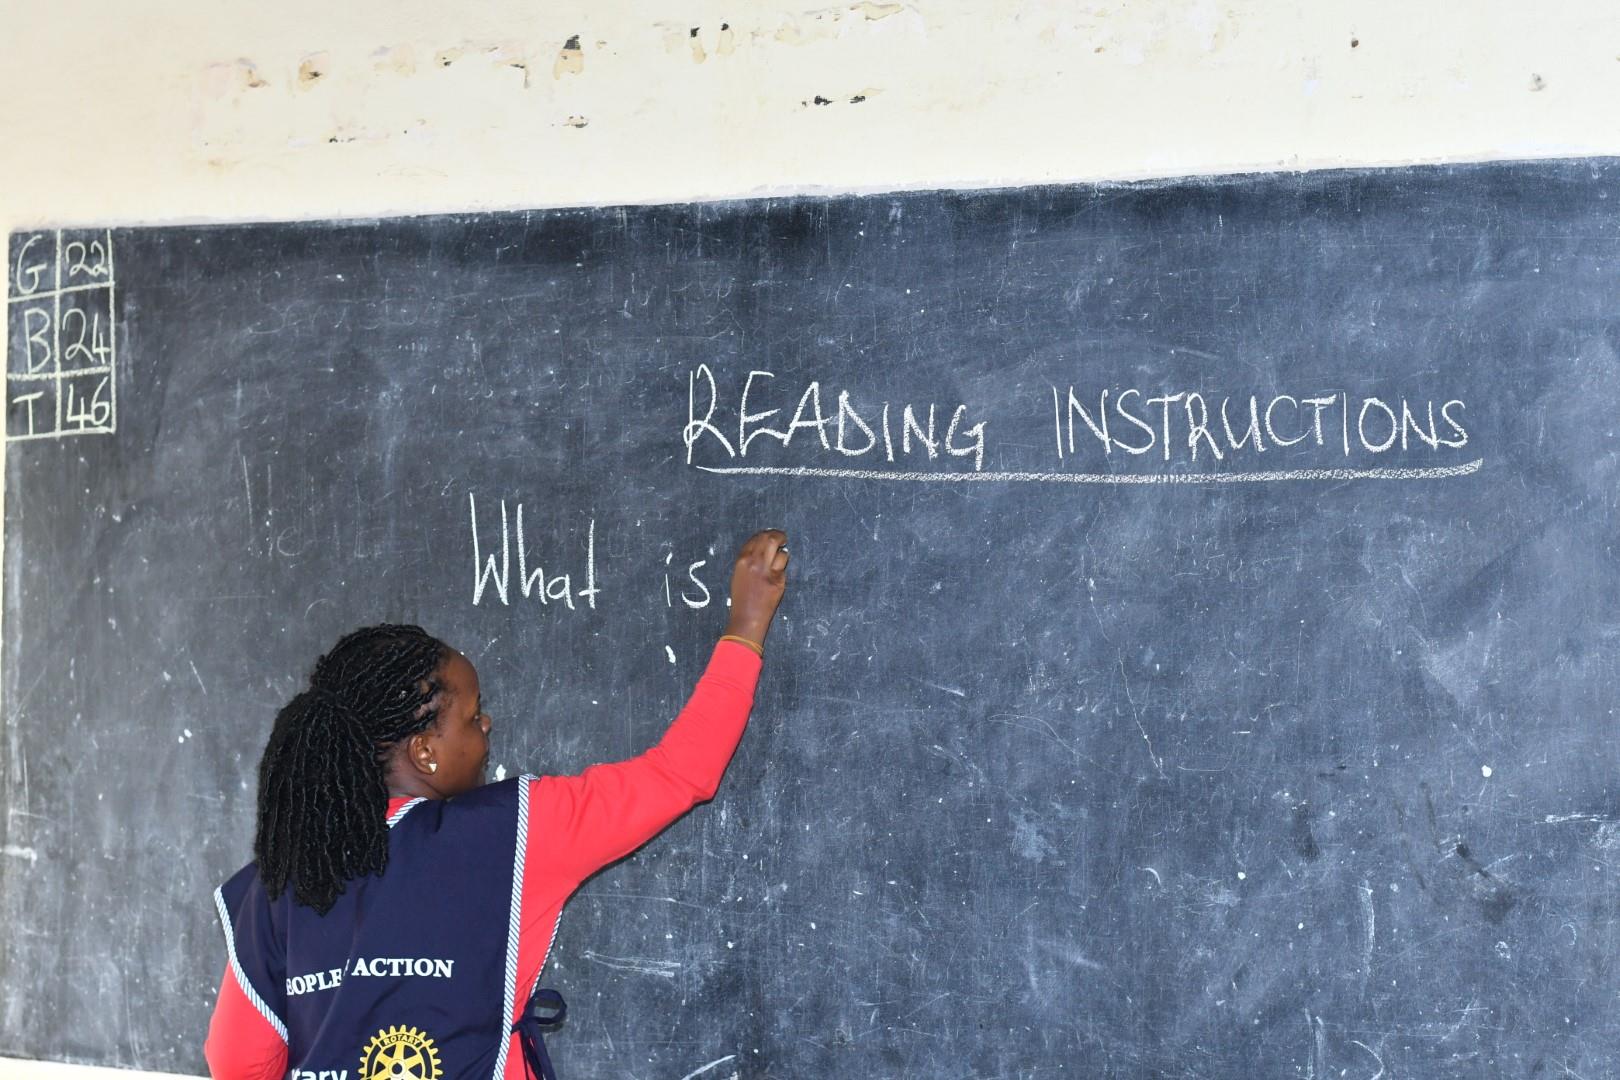 G 22
B 24
T 46
READING INSTRUCTIONS
What is
ACTION
ROTARY